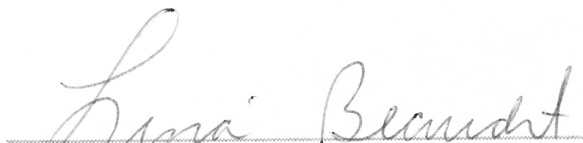 Lina Beaudet